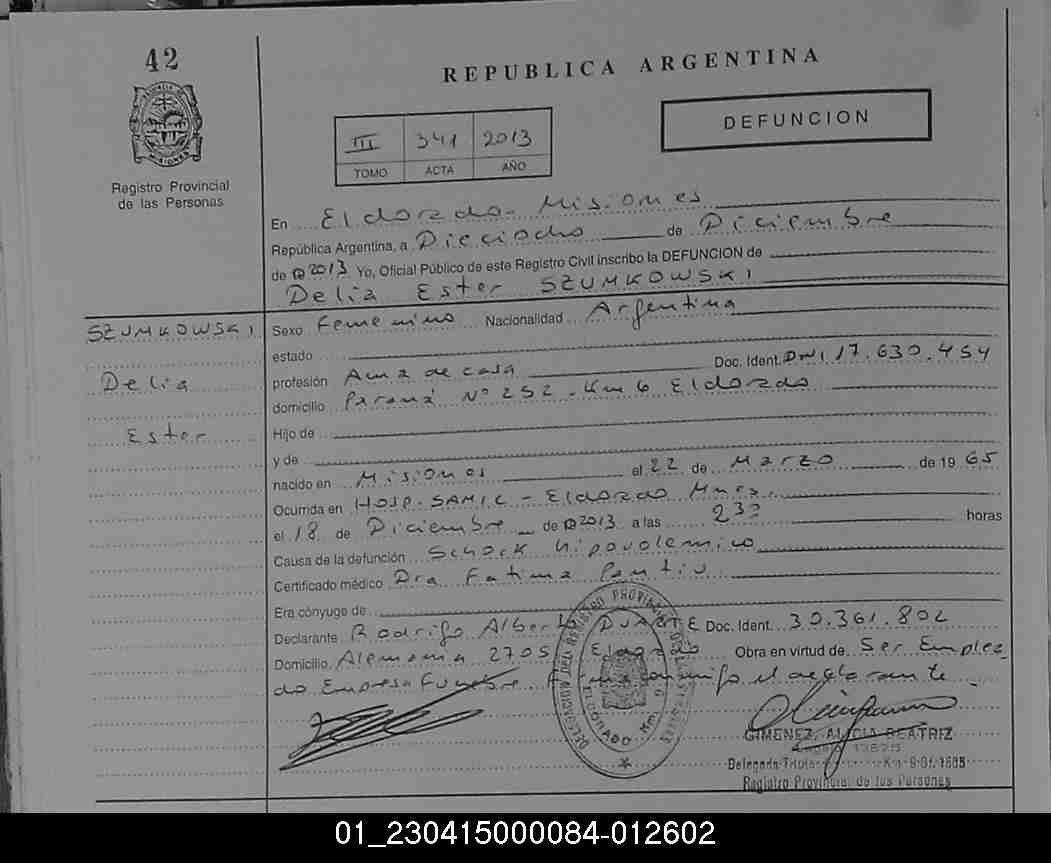 42
REPUBLICA ARGENTINA
DEFUNCION
III 341 2013
TOMO ACTA AÑO
MISIONES
Registro Provincial
de las Personas
En Eldorado - Misiones
República Argentina, a Dieciocho de Diciembre
de 2013 Yo, Oficial Público de este Registro Civil inscribo la DEFUNCION de
Delia Ester SZUMKOWSKI
SZUMKOWSKI
Delia
Ester
Sexo Femenino Nacionalidad Argentina
estado
profesión Ama de casa Doc. Ident. DNI 17.630.454
domicilio Paraná Nº 252 - Km 6 Eldorado
Hijo de
y de
nacido en Misiones el 22 de Marzo de 1965
Ocurrida en Hosp. SAMIC - Eldorado Mnes
el 18 de Diciembre de 2013 a las horas
Causa de la defunción Schock hipovolemico
Certificado médico Dra Fatima
Era cónyuge de
Declarante Rodrigo Alberto DUARTE Doc. Ident. 30.361.802
Domicilio Alemania 2705 Eldorado Obra en virtud de Ser Emplea
do Empresa Funebre Firma conmigo el declarante
DELEGACION DEL REGISTRO PROVINCIAL DE LAS PERSONAS
ELDORADO Km. 6
GIMENEZ, ALICIA BEATRIZ
Delegada Titular
Registro Provincial de las Personas
01_230415000084-012602